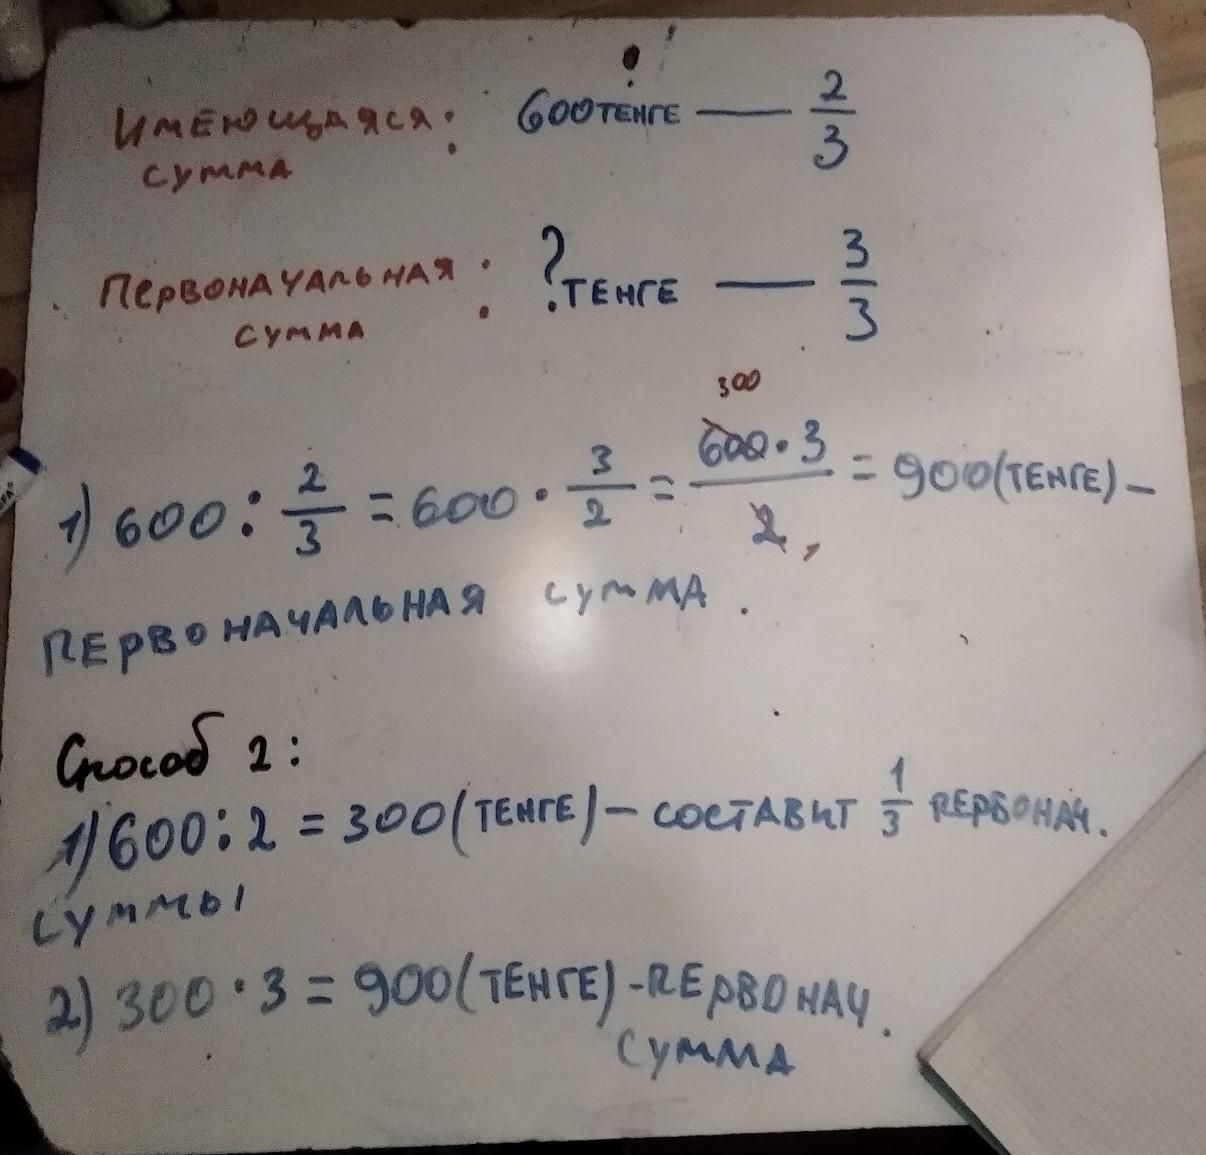 ИМЕЮЩАЯСЯ: 600 ТЕНГЕ — 2/3
СУММА
ПЕРВОНАЧАЛЬНАЯ: ? ТЕНГЕ — 3/3
СУММА
300
1) 600 : 2/3 = 600 · 3/2 = 600·3/2 = 900 (ТЕНГЕ) –
ПЕРВОНАЧАЛЬНАЯ СУММА.
Способ 2:
1) 600 : 2 = 300 (ТЕНГЕ) – СОСТАВИТ 1/3 ПЕРВОНАЧ.
СУММЫ
2) 300 · 3 = 900 (ТЕНГЕ) - ПЕРВОНАЧ.
СУММА